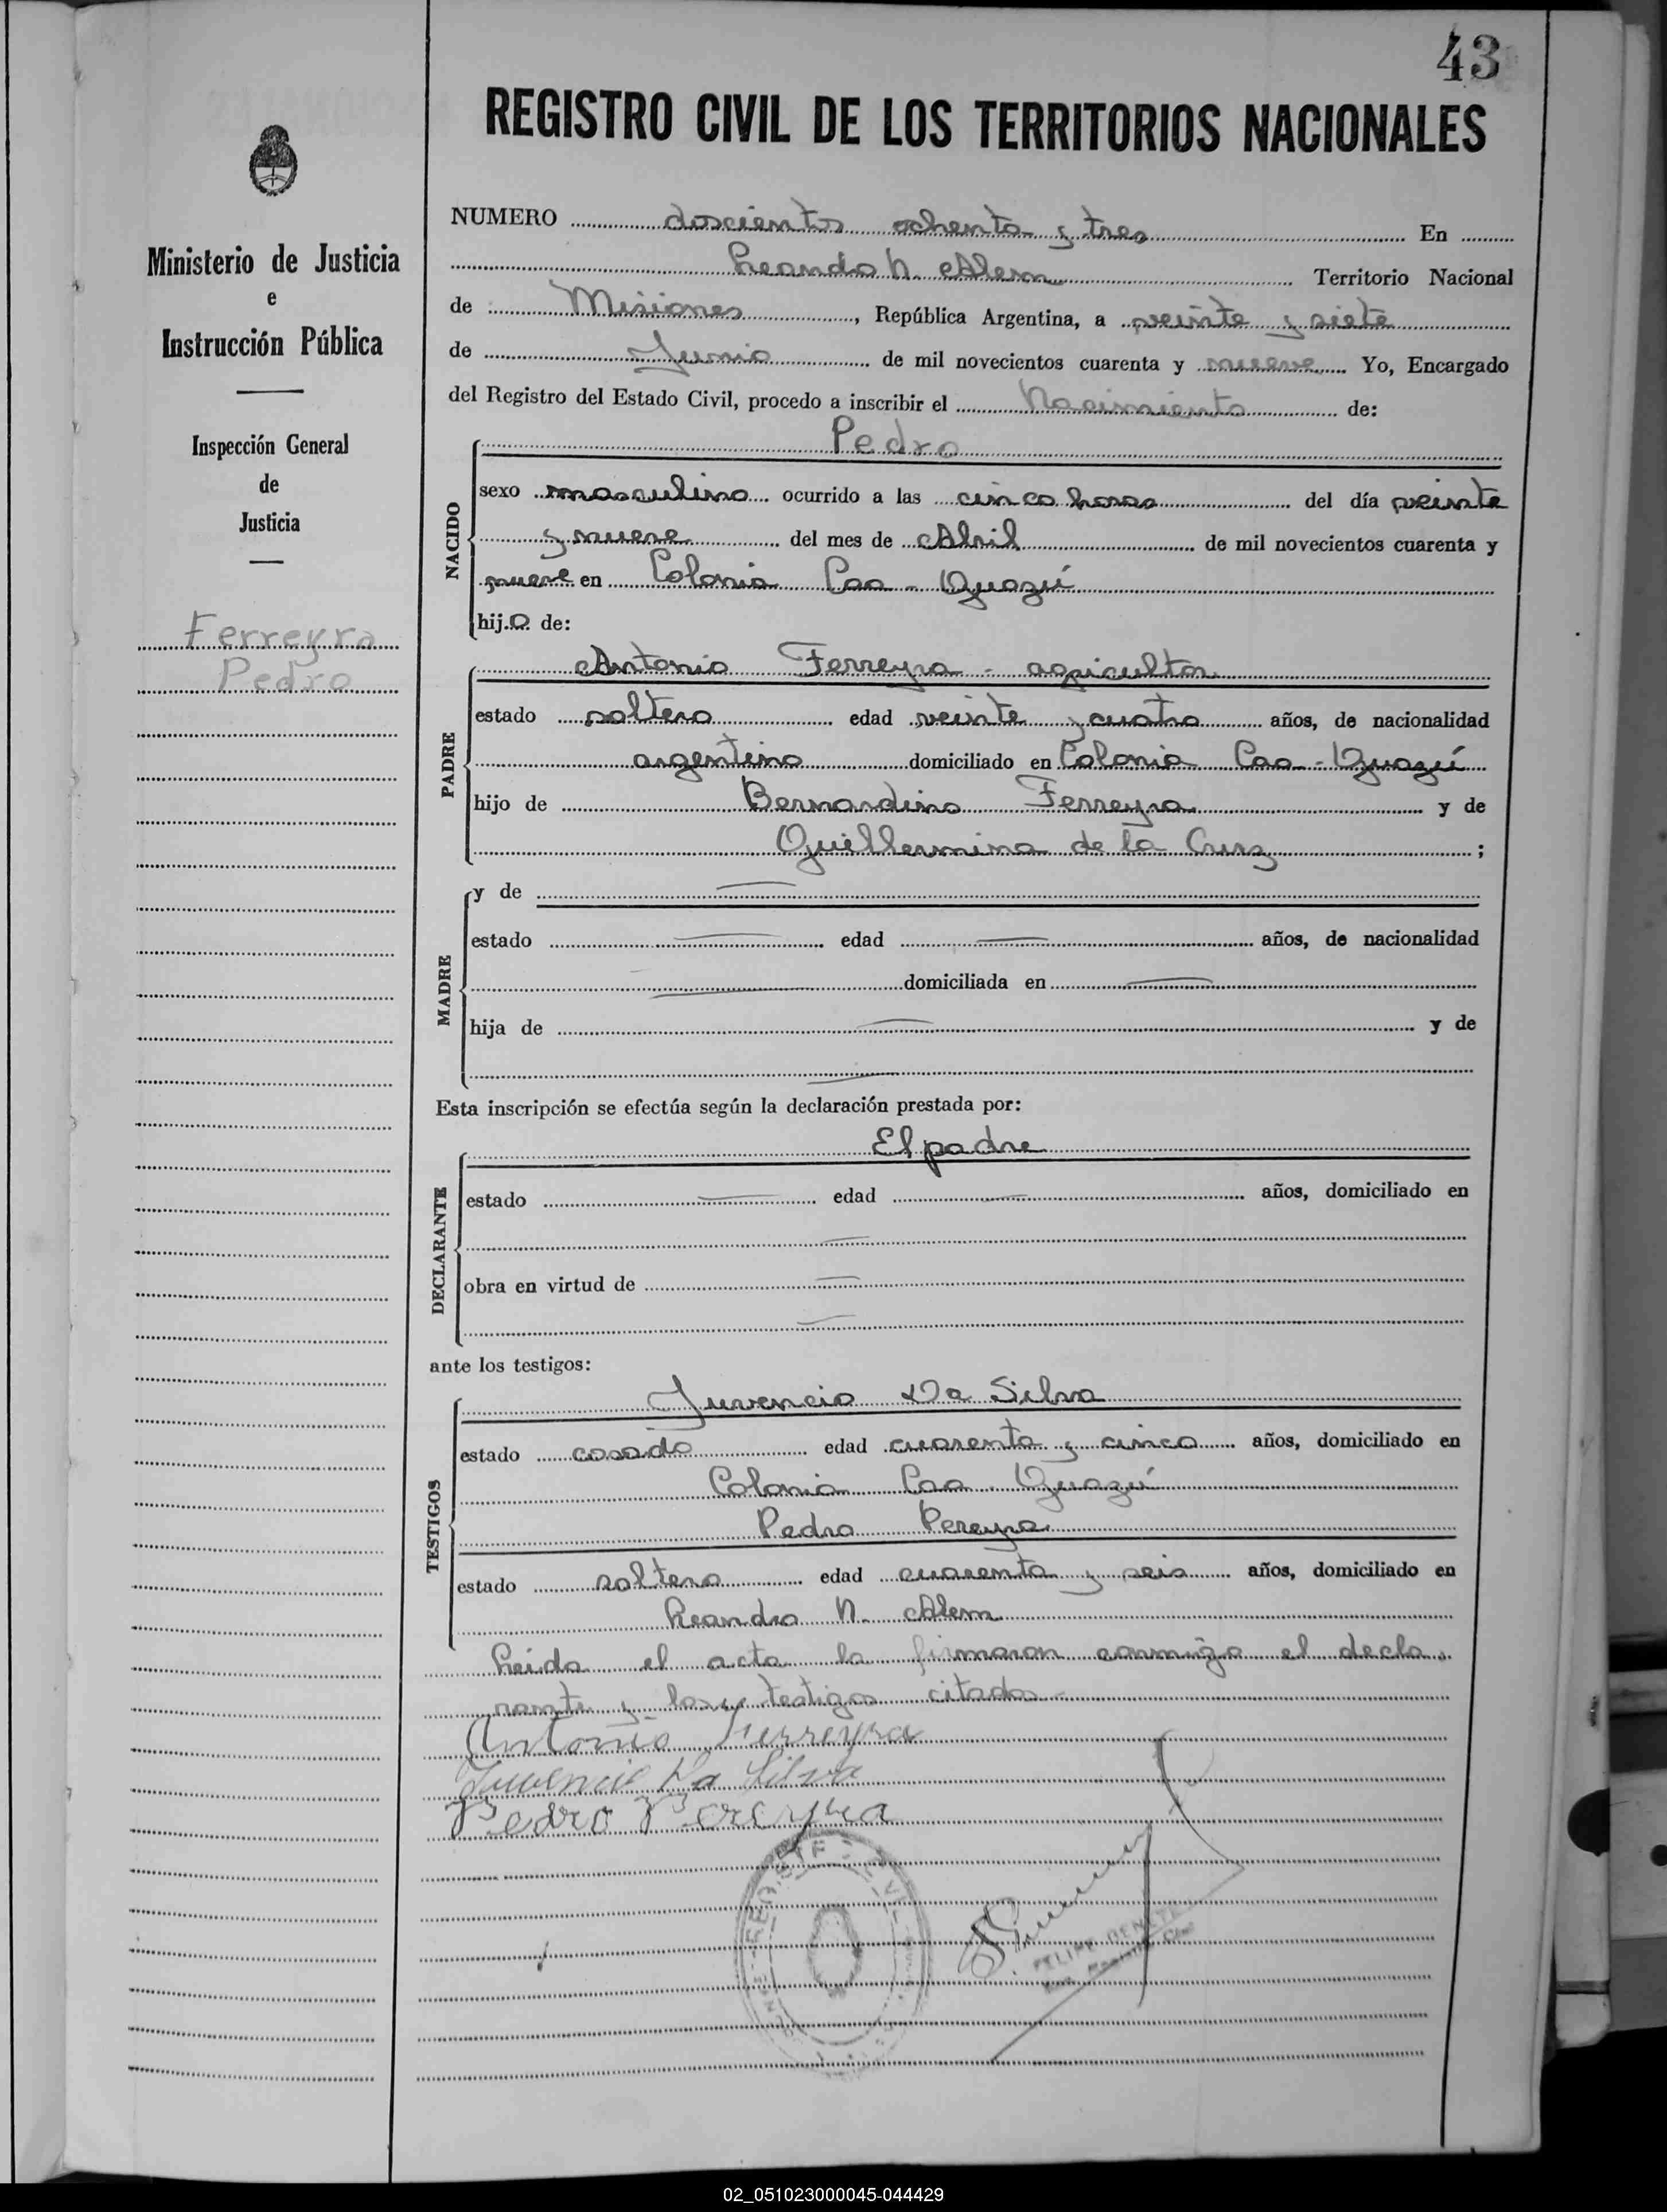 43
REGISTRO CIVIL DE LOS TERRITORIOS NACIONALES
Ministerio de Justicia
e
Instrucción Pública
Inspección General
de
Justicia
Ferreyra
Pedro
NUMERO doscientos ochenta y tres En
Leandro N. Alem Territorio Nacional
de Misiones, República Argentina, a veinte y siete
de Junio de mil novecientos cuarenta y nueve Yo, Encargado
del Registro del Estado Civil, procedo a inscribir el Nacimiento de:
NACIDO
Pedro
sexo masculino ocurrido a las cinco horas del día veinte
y nueve del mes de Abril de mil novecientos cuarenta y
nueve en Colonia Caa-Guazú
hijo de:
PADRE
Antonio Ferreyra - agricultor
estado soltero edad veinte y cuatro años, de nacionalidad
argentino domiciliado en Colonia Caa-Guazú
hijo de Bernardino Ferreyra y de
Guillermina de la Cruz ;
MADRE
y de
estado edad años, de nacionalidad
domiciliada en
hija de y de
Esta inscripción se efectúa según la declaración prestada por:
DECLARANTE
El padre
estado edad años, domiciliado en
obra en virtud de
ante los testigos:
TESTIGOS
Juvencio Da Silva
estado casado edad cuarenta y cinco años, domiciliado en
Colonia Caa-Guazú
Pedro Pereyra
estado soltero edad cuarenta y seis años, domiciliado en
Leandro N. Alem
Leida el acta la firmaron conmigo el decla-
rante y los testigos citados-
Antonio Ferreyra
Juvencio Da Silva
Pedro Pereyra
FELIPE
02_051023000045-044429